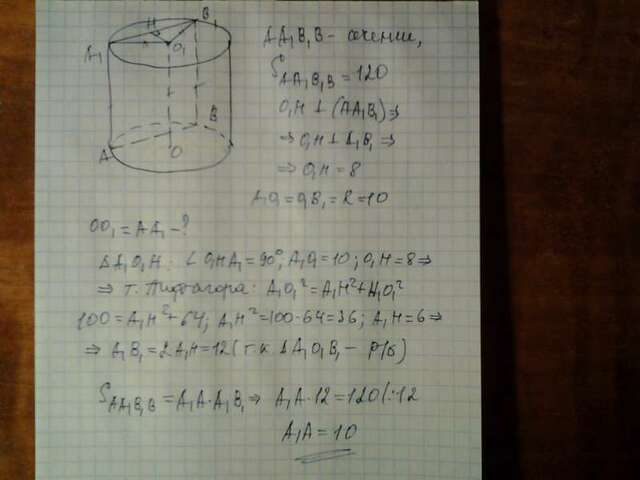 A₁ H B₁ O₁
A B O
AA₁B₁B - сечение,
S AA₁B₁B = 120
O₁H ⊥ (AA₁B₁) ⇒
⇒ O₁H ⊥ A₁B₁ ⇒
⇒ O₁H = 8
A₁O₁ = O₁B₁ = R = 10
OO₁ = AA₁ - ?
Δ A₁O₁H: ∠ O₁HA₁ = 90°; A₁O₁ = 10; O₁H = 8 ⇒
⇒ т. Пифагора: A₁O₁² = A₁H² + HO₁²
100 = A₁H² + 64; A₁H² = 100 - 64 = 36; A₁H = 6 ⇒
⇒ A₁B₁ = 2A₁H = 12 (т.к. Δ A₁O₁B₁ - р/б)
S AA₁B₁B = A₁A · A₁B₁ ⇒ A₁A · 12 = 120 | : 12
A₁A = 10